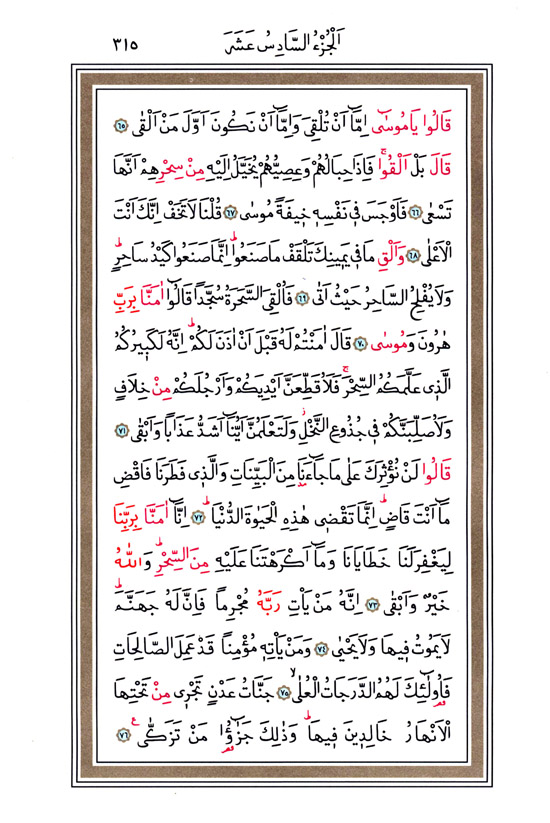 اَلْجُزْءُ السَّادِسُ عَشَرَ
٣١٥
قَالُوا يَا مُوسٰٓى اِمَّٓا اَنْ تُلْقِيَ وَاِمَّٓا اَنْ نَكُونَ اَوَّلَ مَنْ اَلْقٰى ﴿٦٥﴾
قَالَ بَلْ اَلْقُواۚ فَاِذَا حِبَالُهُمْ وَعِصِيُّهُمْ يُخَيَّلُ اِلَيْهِ مِنْ سِحْرِهِمْ اَنَّهَا
تَسْعٰى ﴿٦٦﴾ فَاَوْجَسَ فِي نَفْسِهِ خِيفَةً مُوسٰى ﴿٦٧﴾ قُلْنَا لَا تَخَفْ اِنَّكَ اَنْتَ
الْاَعْلٰى ﴿٦٨﴾ وَاَلْقِ مَا فِي يَمِينِكَ تَلْقَفْ مَا صَنَعُواۜ اِنَّمَا صَنَعُوا كَيْدُ سَاحِرٍۜ
وَلَا يُفْلِحُ السَّاحِرُ حَيْثُ اَتٰى ﴿٦٩﴾ فَاُلْقِيَ السَّحَرَةُ سُجَّدًا قَالُٓوا اٰمَنَّا بِرَبِّ
هٰرُونَ وَمُوسٰى ﴿٧٠﴾ قَالَ اٰمَنْتُمْ لَهُ قَبْلَ اَنْ اٰذَنَ لَكُمْۜ اِنَّهُ لَكَبِيرُكُمُ
الَّذِي عَلَّمَكُمُ السِّحْرَۚ فَلَاُقَطِّعَنَّ اَيْدِيَكُمْ وَاَرْجُلَكُمْ مِنْ خِلَافٍ
وَلَاُصَلِّبَنَّكُمْ فِي جُذُوعِ النَّخْلِۘ وَلَتَعْلَمُنَّ اَيُّنَٓا اَشَدُّ عَذَابًا وَاَبْقٰى ﴿٧١﴾
قَالُوا لَنْ نُؤْثِرَكَ عَلٰى مَا جَٓاءَنَا مِنَ الْبَيِّنَاتِ وَالَّذِي فَطَرَنَا فَاقْضِ
مَٓا اَنْتَ قَاضٍۜ اِنَّمَا تَقْضِي هٰذِهِ الْحَيٰوةَ الدُّنْيَاۜ ﴿٧٢﴾ اِنَّٓا اٰمَنَّا بِرَبِّنَا
لِيَغْفِرَ لَنَا خَطَايَانَا وَمَٓا اَكْرَهْتَنَا عَلَيْهِ مِنَ السِّحْرِۜ وَاللّٰهُ
خَيْرٌ وَاَبْقٰى ﴿٧٣﴾ اِنَّهُ مَنْ يَأْتِ رَبَّهُ مُجْرِمًا فَاِنَّ لَهُ جَهَنَّمَۜ
لَا يَمُوتُ فِيهَا وَلَا يَحْيٰى ﴿٧٤﴾ وَمَنْ يَأْتِهِ مُؤْمِنًا قَدْ عَمِلَ الصَّالِحَاتِ
فَاُو۬لٰٓئِكَ لَهُمُ الدَّرَجَاتُ الْعُلٰىۙ ﴿٧٥﴾ جَنَّاتُ عَدْنٍ تَجْرِي مِنْ تَحْتِهَا
الْاَنْهَارُ خَالِدِينَ فِيهَاۜ وَذٰلِكَ جَزٰٓؤُ۬ا مَنْ تَزَكّٰى ﴿٧٦﴾